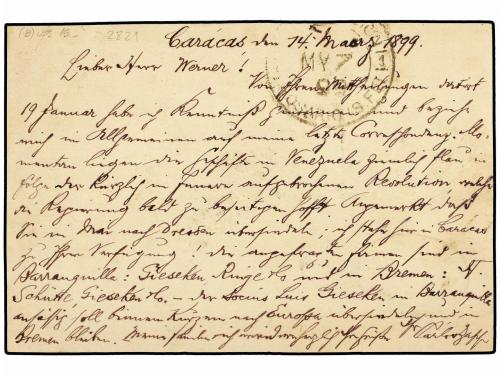 2821
Carácas den 14. Maerz 1899.
Lieber Herr Werner!
MY 7
1
Von Ihren Mittheilungen datirt
19 Januar habe ich Kenntniß und beziehe
mich im Allgemeinen auf meine letzte Correspondenz. Mo-
mentan liegen die Geschäfte in Venezuela ziemlich flau in
folge der kürzlich im Innern aufgebrochenen Revolution welche
die Regierung bald zu beseitigen hofft. Angemerkt daß
Sie im Mai nach Dresden übersiedeln; ich stehe hier in Carácas
zu Ihrer Verfügung; die angefragten Firmen sind in
Barranquilla: Gieseken, Ringe & Co und in Bremen: A
Schütte Gieseken & Co. – der Socius Luis Gieseken in Barranquilla
ansässig soll binnen Kurzem nach Europa übersiedeln und in
Bremen bleiben.